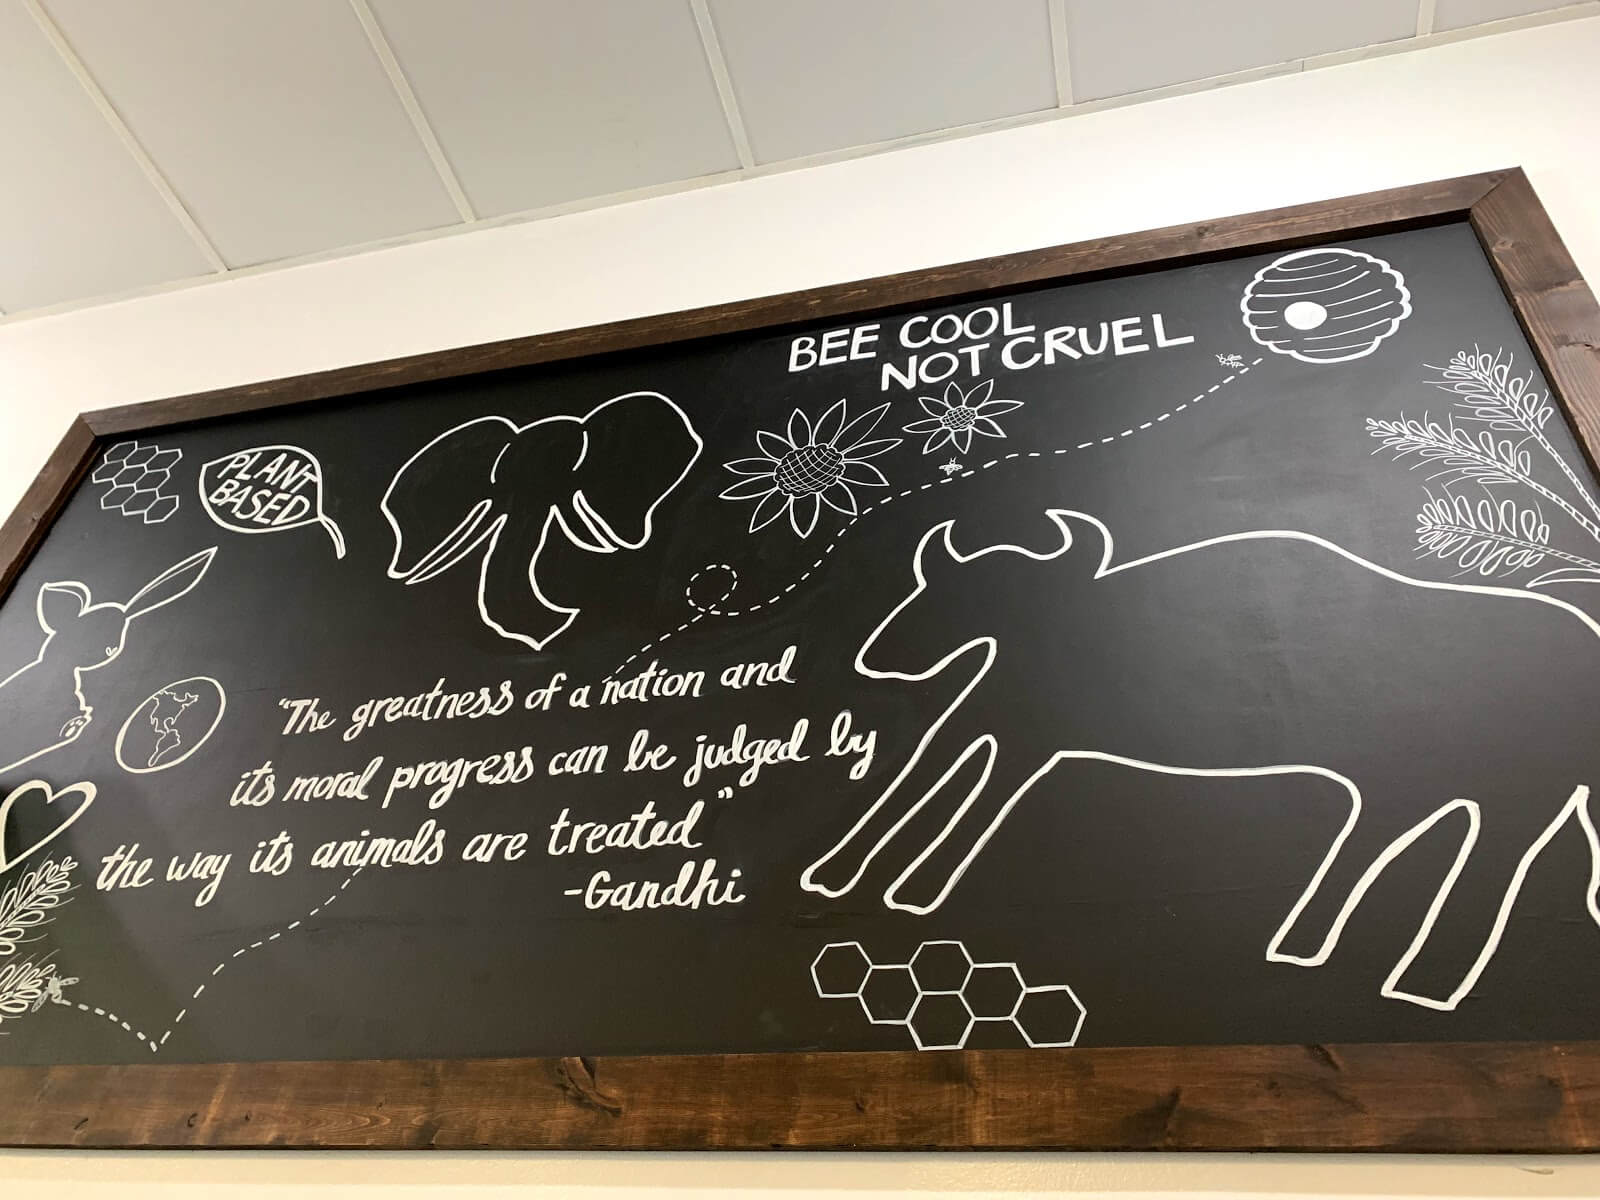 BEE COOL
NOT CRUEL
PLANT
BASED
"The greatness of a nation and
its moral progress can be judged by
the way its animals are treated"
-Gandhi